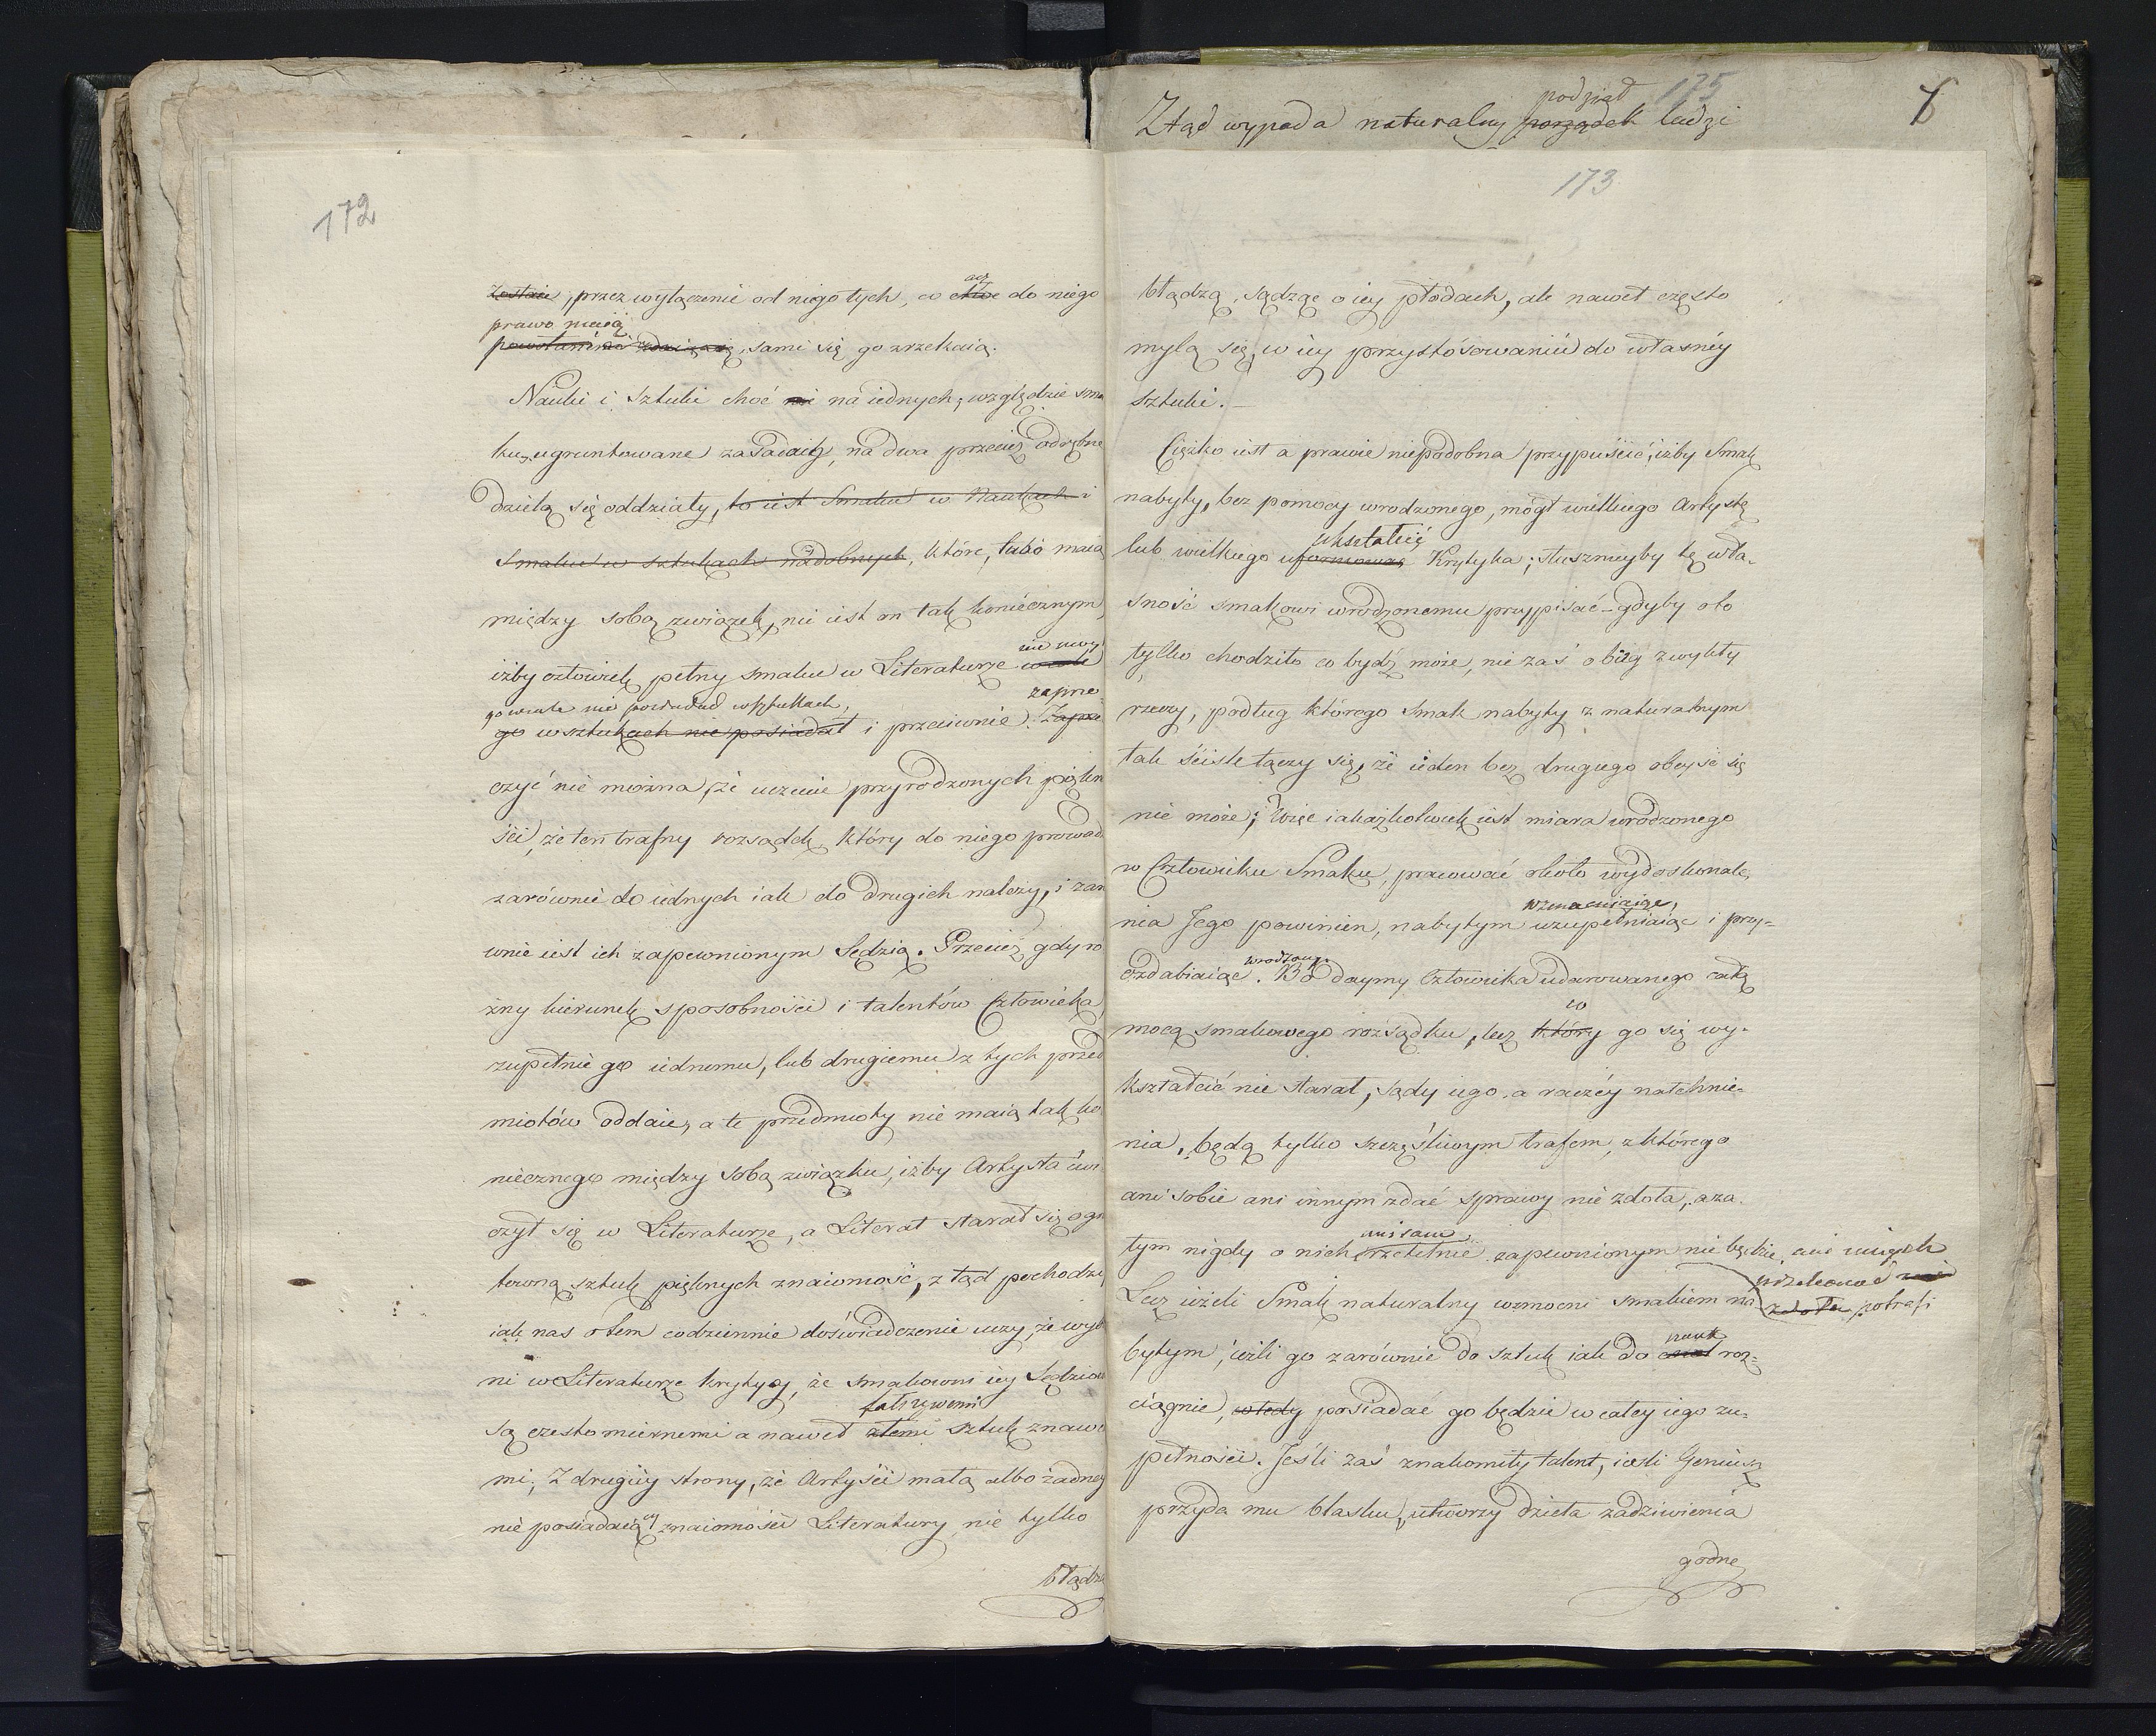 172
acz
zostaie, przez wyłączenie od niego tych, co choć do niego
prawo maią
sami się go zrzekaią.
Nauki i Sztuki choć na iednych, względzie sma
ku, ugruntowane zasadach, na dwa przecież odrębne
dzielą się oddziały, to iest Smaku w Naukach i
Smaku w sztukach nadobnych, które, lubo maią
między sobą związek, nie iest on tak koniecznym,
nie mógł
iżby człowiek pełny smaku w Literaturze wcale
go wcale nie posiadać w sztukach, zaprze
go w sztukach nie posiadał i przeciwnie. Zaprze
czyć nie można, że uczucie przyrodzonych piękn
ści, że ten trafny rozsądek, który do niego prowadz
zarównie do iednych iak do drugich należy, i zar
wnie iest ich zapewnionym Sędzią. Przecież gdy ro
żny kierunek sposobności i talentów Człowieka,
zupełnie go iednemu, lub drugiemu z tych przed
miotów oddaie, a te przedmioty nie maią tak ko
niecznego między sobą związku, iżby Artysta ćwi
czył się w Literaturze, a Literat starał się o gr
towną sztuk pięknych znaiomość, z tąd pochodzi,
iak nas o tem codziennie doświadczenie uczy, że wyb
ni w Literaturze krytycy, że smakowni iey Sędziow
fałszywemi
są czesto miernemi a nawet złemi sztuk znawc
mi, Z drugiey strony, że Artyści małą albo żadney
nie posiadaiący znaiomości Literatury nie tylko
błądzą
175
podział
Ztąd wypada naturalny porządek ludzi
173
błądzą, sądząc o iey płodach, ale nawet często
mylą się, w iey przystósowaniu do własnéy
sztuki. —
Ciężko iest a prawie niepodobna przypuścić, iżby Smak
nabyty, bez pomocy wrodzonego, mógł wielkiego Artystę
ukształcić
lub wielkiego uformować Krytyka; słuszneyby tę wła-
sność smakowi wrodzonemu przypisać - gdyby o to
tylko chodziło co bydź może, nie zaś o bieg zwykły
rzeczy, podług którego smak nabyty z naturalnym
tak ściśle łączy się, że ieden bez drugiego obeyść się
nie może; Więc iakażkolwiek iest miara wrodzonego
w Człowieku Smaku, pracować około wydoskonale-
wzmacniaiąc,
nia Jego powinien, nabytym uzupełniaiąc i przy-
wrodzony.
ozdabiaiąc. Bo daymy Człowieka udarowanego całą
co
mocą smakowego rozsądku, lecz który go się wy-
kształcić nie starał, sądy iego, a raczéy natchnie-
nia, będą tylko szczęśliwym trafem, z którego
ani sobie ani innym zdać sprawy nie zdoła, a za
tym nigdy o nich rzetelnie zapewnionym nie będzie, ani innych
przekonać nie
Lecz ieżeli Smak naturalny wzmocni smakiem na zdoła potrafi
nauk
bytym, ieżli go zarównie do sztuk iak do roz-
ciągnie, wtedy posiadać go będzie w całey iego zu-
pełności. Jeśli zaś znakomity talent, ieśli Geniusz
przyda mu blasku, utworzy dzieła zadziwienia
godne